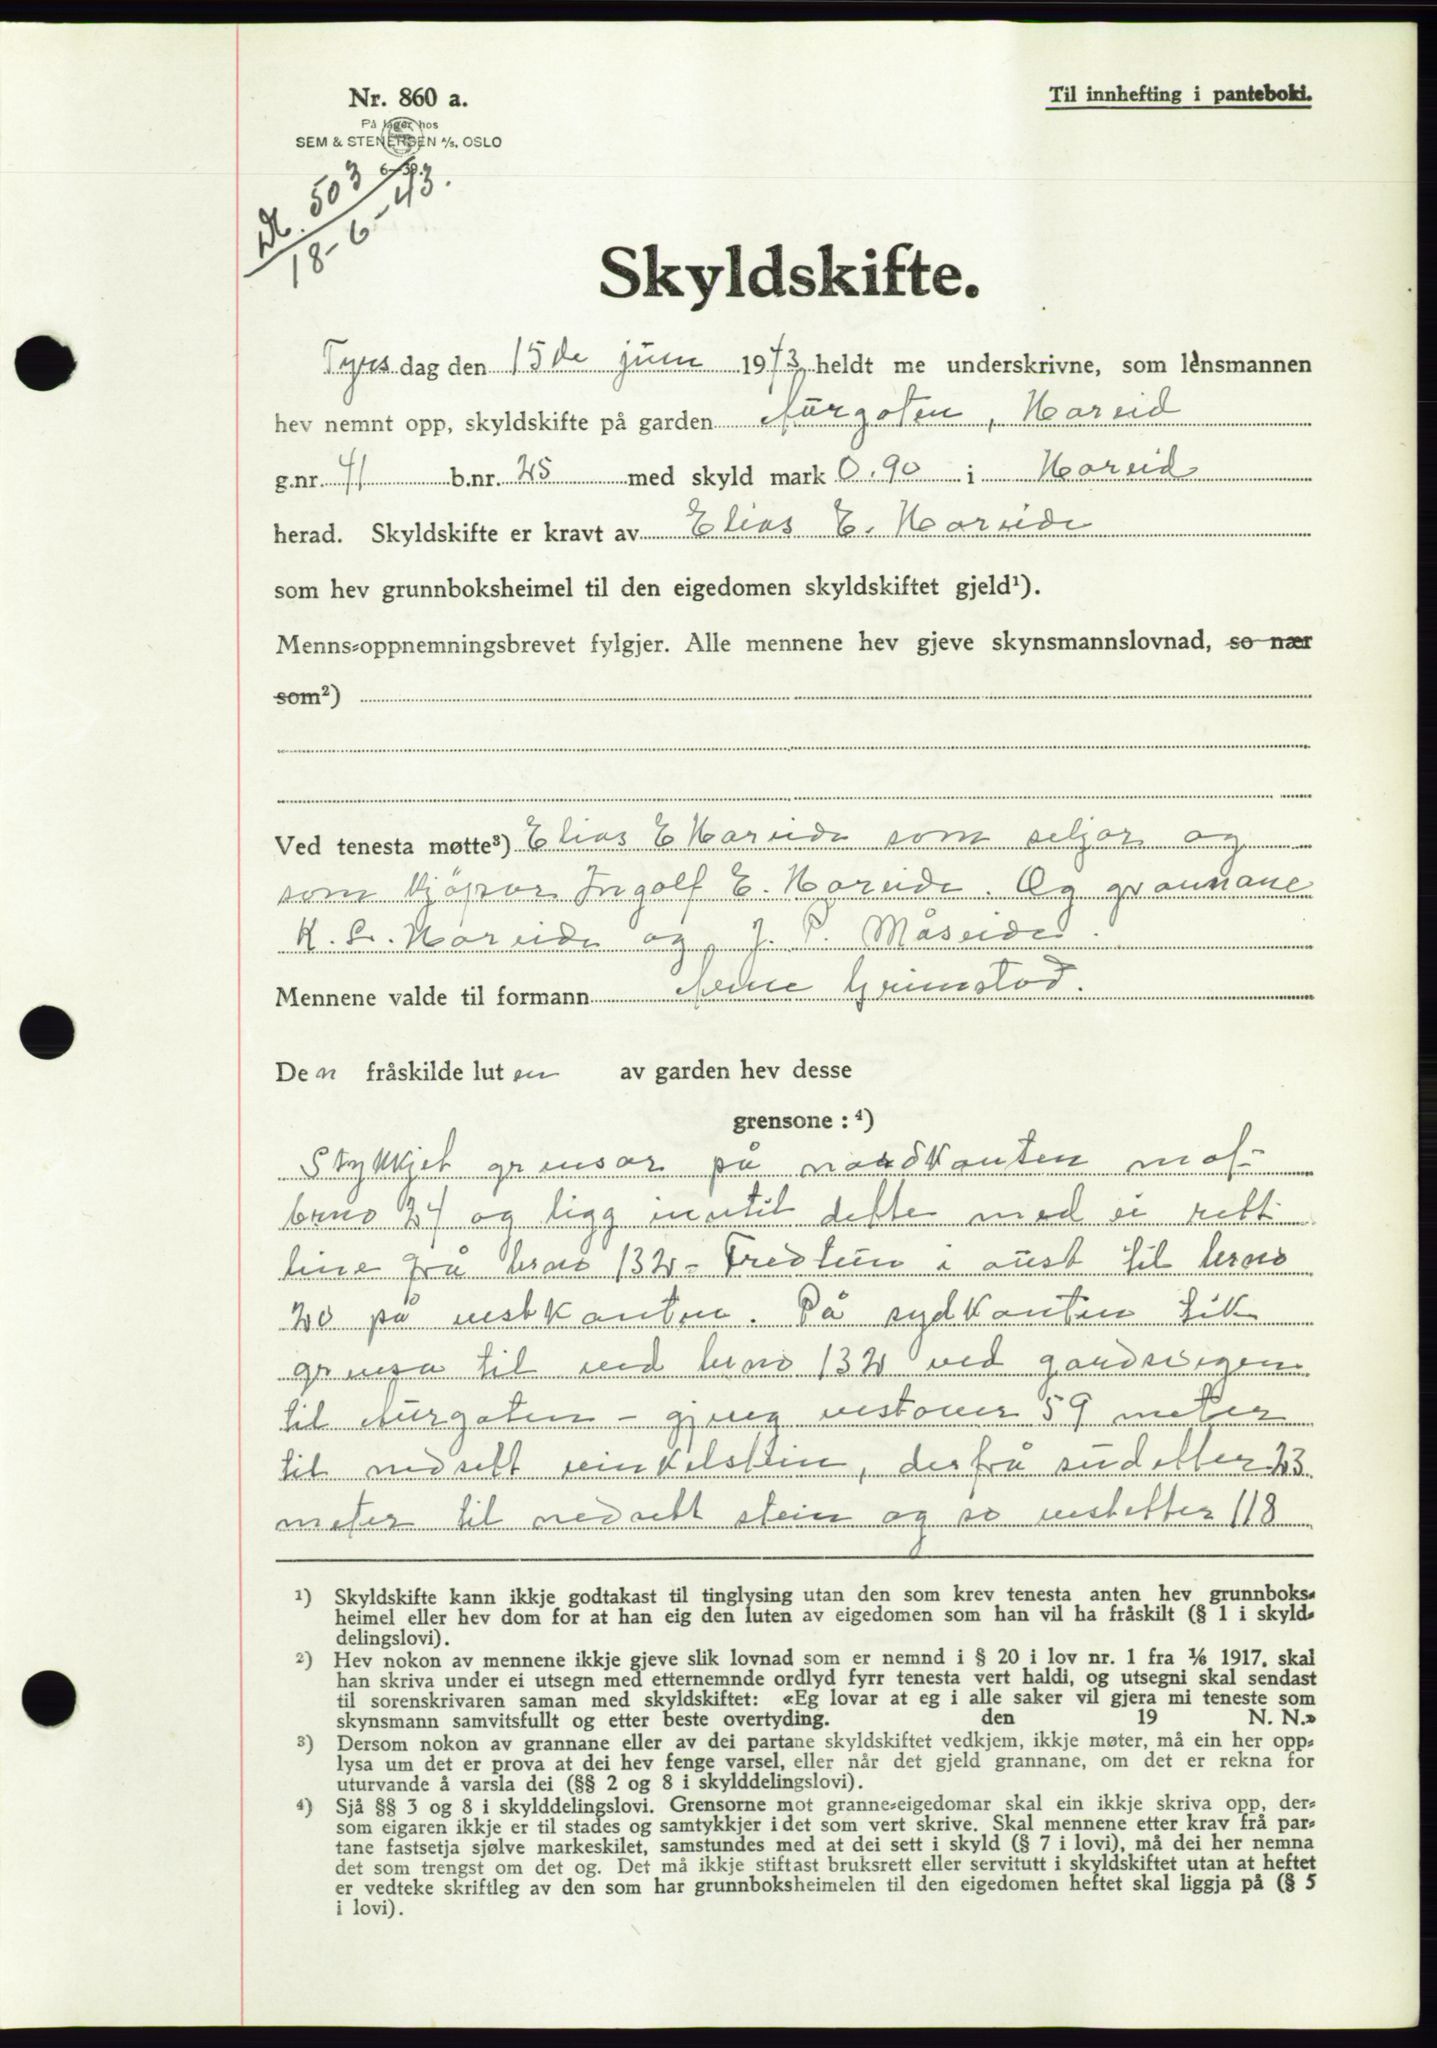 Nr. 860 a.
På lager hos
SEM & STENERSEN A/S, OSLO
6—39.
Til innhefting i panteboki.
Nr. 503
18-6-43.
Skyldskifte.
Tyrsdag den 15de juni 1943 heldt me underskrivne, som lensmannen
hev nemnt opp, skyldskifte på garden Aurgoten, Hareid
g.nr. 41 b.nr. 25 med skyld mark 0.90 i Hareid
herad. Skyldskifte er kravt av Elias E. Hareide
som hev grunnboksheimel til den eigedomen skyldskiftet gjeld¹).
Menns-oppnemningsbrevet fylgjer. Alle mennene hev gjeve skynsmannslovnad, so nær
som²)
Ved tenesta møtte³) Elias E Hareide som seljar og
som kjöpar Ingolf E. Hareide. Og grannane
K. L. Hareide og J. P. Måseide.
Mennene valde til formann Arne Grimstad.
Den fråskilde luten av garden hev desse
grensone: ⁴)
Stykkjet grensar på nordkanten mot
brno 24 og ligg inntil dette med ei rett
line frå brno 132 - Fredtun i aust til brno
20 på vestkanten. På sydkanten tek
grensa til ved brno 132 ved gardsvegen
til Aurgoten - gjeng vestover 59 meter
til nedsett vinkelstein, derfrå sudetter 23
meter til nedsett stein og so vestetter 118
¹) Skyldskifte kann ikkje godtakast til tinglysing utan den som krev tenesta anten hev grunnboks-
heimel eller hev dom for at han eig den luten av eigedomen som han vil ha fråskilt (§ 1 i skyld-
delingslovi).
²) Hev nokon av mennene ikkje gjeve slik lovnad som er nemnd i § 20 i lov nr. 1 fra 1/6 1917, skal
han skriva under ei utsegn med etternemnde ordlyd fyrr tenesta vert haldi, og utsegni skal sendast
til sorenskrivaren saman med skyldskiftet: «Eg lovar at eg i alle saker vil gjera mi teneste som
skynsmann samvitsfullt og etter beste overtyding. den 19 N. N.»
³) Dersom nokon av grannane eller av dei partane skyldskiftet vedkjem, ikkje møter, må ein her opp-
lysa um det er prova at dei hev fenge varsel, eller når det gjeld grannane, om det er rekna for
uturvande å varsla dei (§§ 2 og 8 i skylddelingslovi).
⁴) Sjå §§ 3 og 8 i skylddelingslovi. Grensorne mot granne-eigedomar skal ein ikkje skriva opp, der-
som eigaren ikkje er til stades og samtykkjer i det som vert skrive. Skal mennene etter krav frå par-
tane fastsetja sjølve markeskilet, samstundes med at dei sett i skyld (§ 7 i lovi), må dei her nemna
det som trengst om det og. Det må ikkje stiftast bruksrett eller servitutt i skyldskiftet utan at heftet
er vedteke skriftleg av den som har grunnboksheimelen til den eigedomen heftet skal liggja på (§ 5
i lovi).